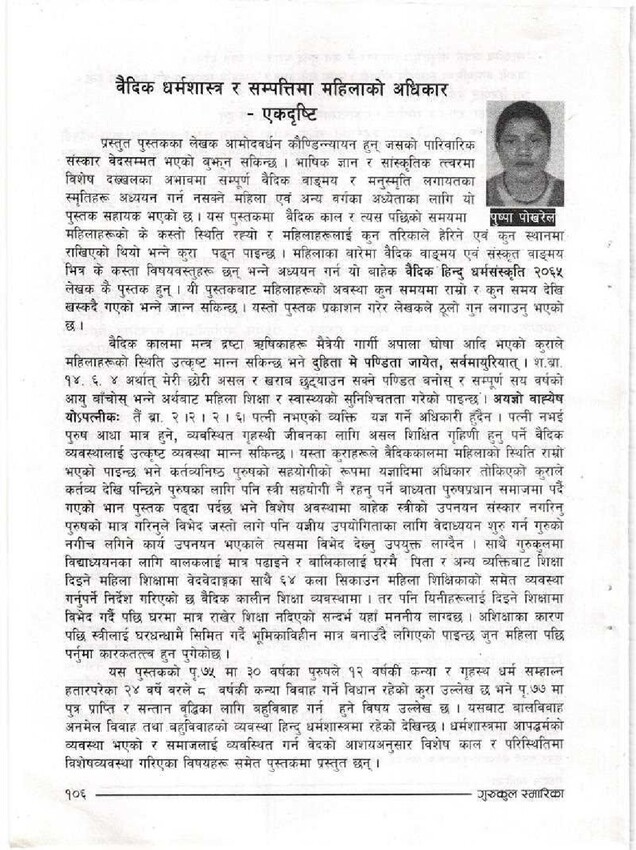 वैदिक धर्मशास्त्र र सम्पत्तिमा महिलाको अधिकार
- एकदृष्टि
पुष्पा पोखरेल
प्रस्तुत पुस्तकका लेखक आमोदवर्धन कौण्डिन्न्यायन हुन् जसको पारिवारिक
संस्कार वेदसम्मत भएको बुझ्न सकिन्छ । भाषिक ज्ञान र सांस्कृतिक तत्त्वरमा
विशेष दख्खलका अभावमा सम्पूर्ण वैदिक वाङ्मय र मनुस्मृति लगायतका
स्मृतिहरू अध्ययन गर्न नसक्ने महिला एवं अन्य वर्गका अध्येताका लागि यो
पुस्तक सहायक भएको छ । यस पुस्तकमा वैदिक काल र त्यस पछिको समयमा
महिलाहरूको के कस्तो स्थिति रह्यो र महिलाहरूलाई कुन तरिकाले हेरिने एवं कुन स्थानमा
राखिएको थियो भन्ने कुरा पढ्न पाइन्छ । महिलाका बारेमा वैदिक वाङ्मय एवं संस्कृत वाङ्मय
भित्र के कस्ता विषयवस्तुहरू छन् भन्ने अध्ययन गर्न यो बाहेक वैदिक हिन्दु धर्मसंस्कृति २०६५
लेखक कै पुस्तक हुन् । यी पुस्तकबाट महिलाहरूको अवस्था कुन समयमा राम्रो र कुन समय देखि
खस्कदै गएको भन्ने जान्न सकिन्छ । यस्तो पुस्तक प्रकाशन गरेर लेखकले ठूलो गुन लगाउनु भएको
छ ।
वैदिक कालमा मन्त्र द्रष्टा ऋषिकाहरू मैत्रेयी गार्गी अपाला घोषा आदि भएको कुराले
महिलाहरूको स्थिति उत्कृष्ट मान्न सकिन्छ भने दुहिता मे पण्डिता जायेत, सर्वमायुरियात् । श.ब्रा.
१४. ६. ४ अर्थात् मेरी छोरी असल र खराब छुट्याउन सक्ने पण्डित बनोस् र सम्पूर्ण सय वर्षको
आयु बाँचोस् भन्ने अर्थबाट महिला शिक्षा र स्वास्थ्यको सुनिश्चितता गरेको पाइन्छ। अयज्ञो वाह्येष
योऽपत्नीकः तै ब्रा. २ ।२ । २ ।६। पत्नी नभएको व्यक्ति यज्ञ गर्ने अधिकारी हुँदैन । पत्नी नभई
पुरुष आधा मात्र हुने, व्यवस्थित गृहस्थी जीवनका लागि असल शिक्षित गृहिणी हुनु पर्ने वैदिक
व्यवस्थालाई उत्कृष्ट व्यवस्था मान्न सकिन्छ । यस्ता कुराहरूले वैदिककालमा महिलाको स्थिति राम्रो
भएको पाइन्छ भने कर्तव्यनिष्ठ पुरुषको सहयोगीको रूपमा यज्ञादिमा अधिकार तोकिएको कुराले
कर्तव्य देखि पन्छिने पुरुषका लागि पनि स्त्री सहयोगी नै रहनु पर्ने बाध्यता पुरुषप्रधान समाजमा पर्दै
गएको भान पुस्तक पढ्दा पर्दछ भने विशेष अवस्थामा बाहेक स्त्रीको उपनयन संस्कार नगरिनु
पुरुषको मात्र गरिनुले विभेद जस्तो लागे पनि यज्ञीय उपयोगिताका लागि वेदाध्ययन शुरु गर्न गुरुको
नगीच लगिने कार्य उपनयन भएकाले त्यसमा विभेद देख्नु उपयुक्त लाग्दैन । साथै गुरुकुलमा
विद्याध्ययनका लागि बालकलाई मात्र पढाइने र बालिकालाई घरमै पिता र अन्य व्यक्तिबाट शिक्षा
दिइने महिला शिक्षामा वेदवेदाङ्गका साथै ६४ कला सिकाउन महिला शिक्षिकाको समेत व्यवस्था
गर्नुपर्ने निर्देश गरिएको छ वैदिक कालीन शिक्षा व्यवस्थामा । तर पनि यिनीहरूलाई दिइने शिक्षामा
विभेद गर्दै पछि घरमा मात्र राखेर शिक्षा नदिएको सन्दर्भ यहाँ मननीय लाग्दछ । अशिक्षाका कारण
पछि स्त्रीलाई घरधन्धामै सिमित गर्दै भूमिकाविहीन मात्र बनाउँदै लगिएको पाइन्छ जुन महिला पछि
पर्नुमा कारकतत्त्व हुन पुगेकोछ ।
यस पुस्तकको पृ.७५ मा ३० वर्षका पुरुषले १२ वर्षकी कन्या र गृहस्थ धर्म सम्हाल्न
हतारपरेका २४ वर्षे वरले ८ वर्षकी कन्या विवाह गर्ने विधान रहेको कुरा उल्लेख छ भने पृ.७७ मा
पुत्र प्राप्ति र सन्तान वृद्धिका लागि बहुविवाह गर्न हुने विषय उल्लेख छ । यसबाट बालविवाह
अनमेल विवाह तथा बहुविवाहको व्यवस्था हिन्दु धर्मशास्त्रमा रहेको देखिन्छ । धर्मशास्त्रमा आपद्धर्मको
व्यवस्था भएको र समाजलाई व्यवस्थित गर्न वेदको आशयअनुसार विशेष काल र परिस्थितिमा
विशेषव्यवस्था गरिएका विषयहरू समेत पुस्तकमा प्रस्तुत छन् ।
१०६
गुरुकुल स्मारिका